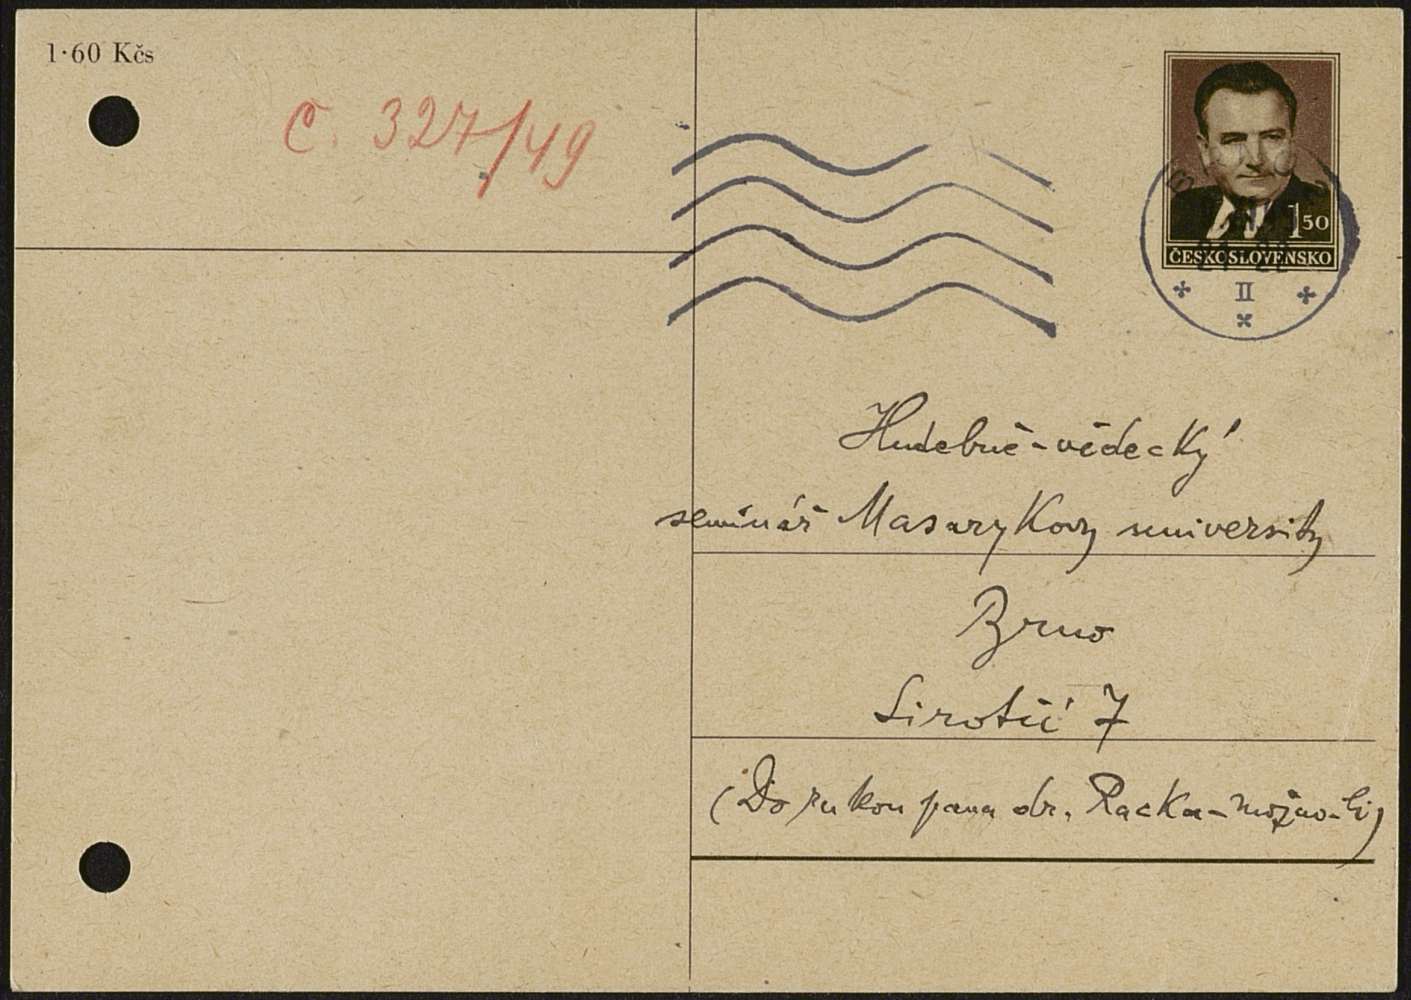 1·60 Kčs
č. 327/49
1 50
ČESKOSLOVENSKO
II
Hudebně-vědecký
seminář Masarykovy university
Brno
Sirotčí 7
(Do rukou pana dr. Racka - možno-li)